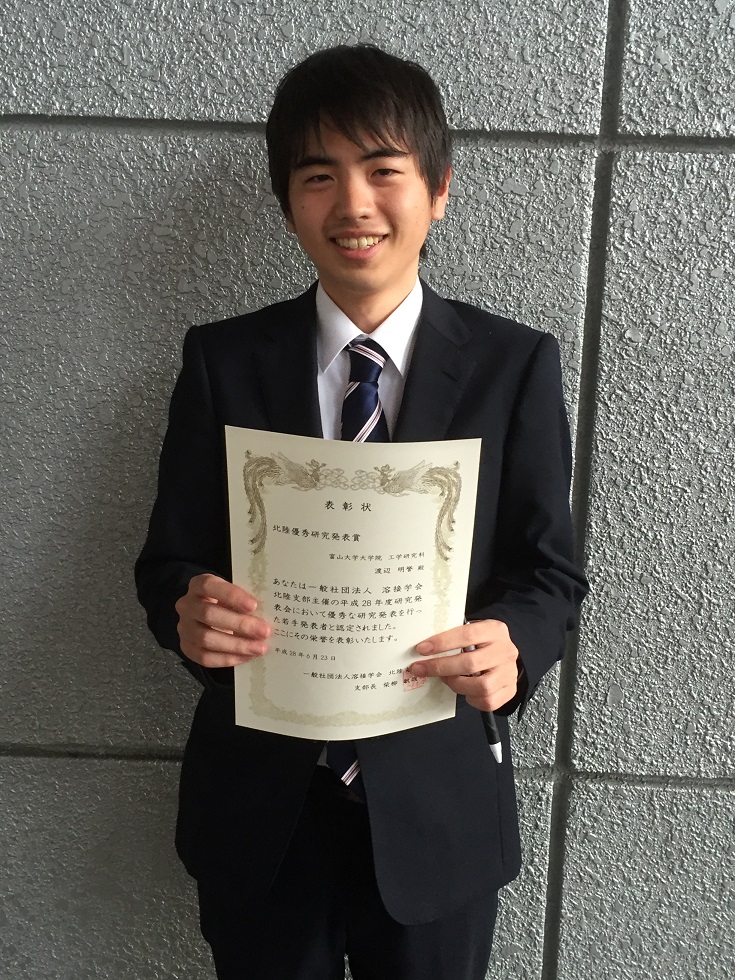 表彰状
北陸優秀研究発表賞
富山大学大学院 工学研究科
渡辺 明誉 殿
あなたは一般社団法人 溶接学会
北陸支部主催の平成28年度研究発
表会において優秀な研究発表を行っ
た若手発表者と認定されました。
ここにその栄誉を表彰いたします。
平成28年6月23日
一般社団法人溶接学会 北陸
支部長 柴柳